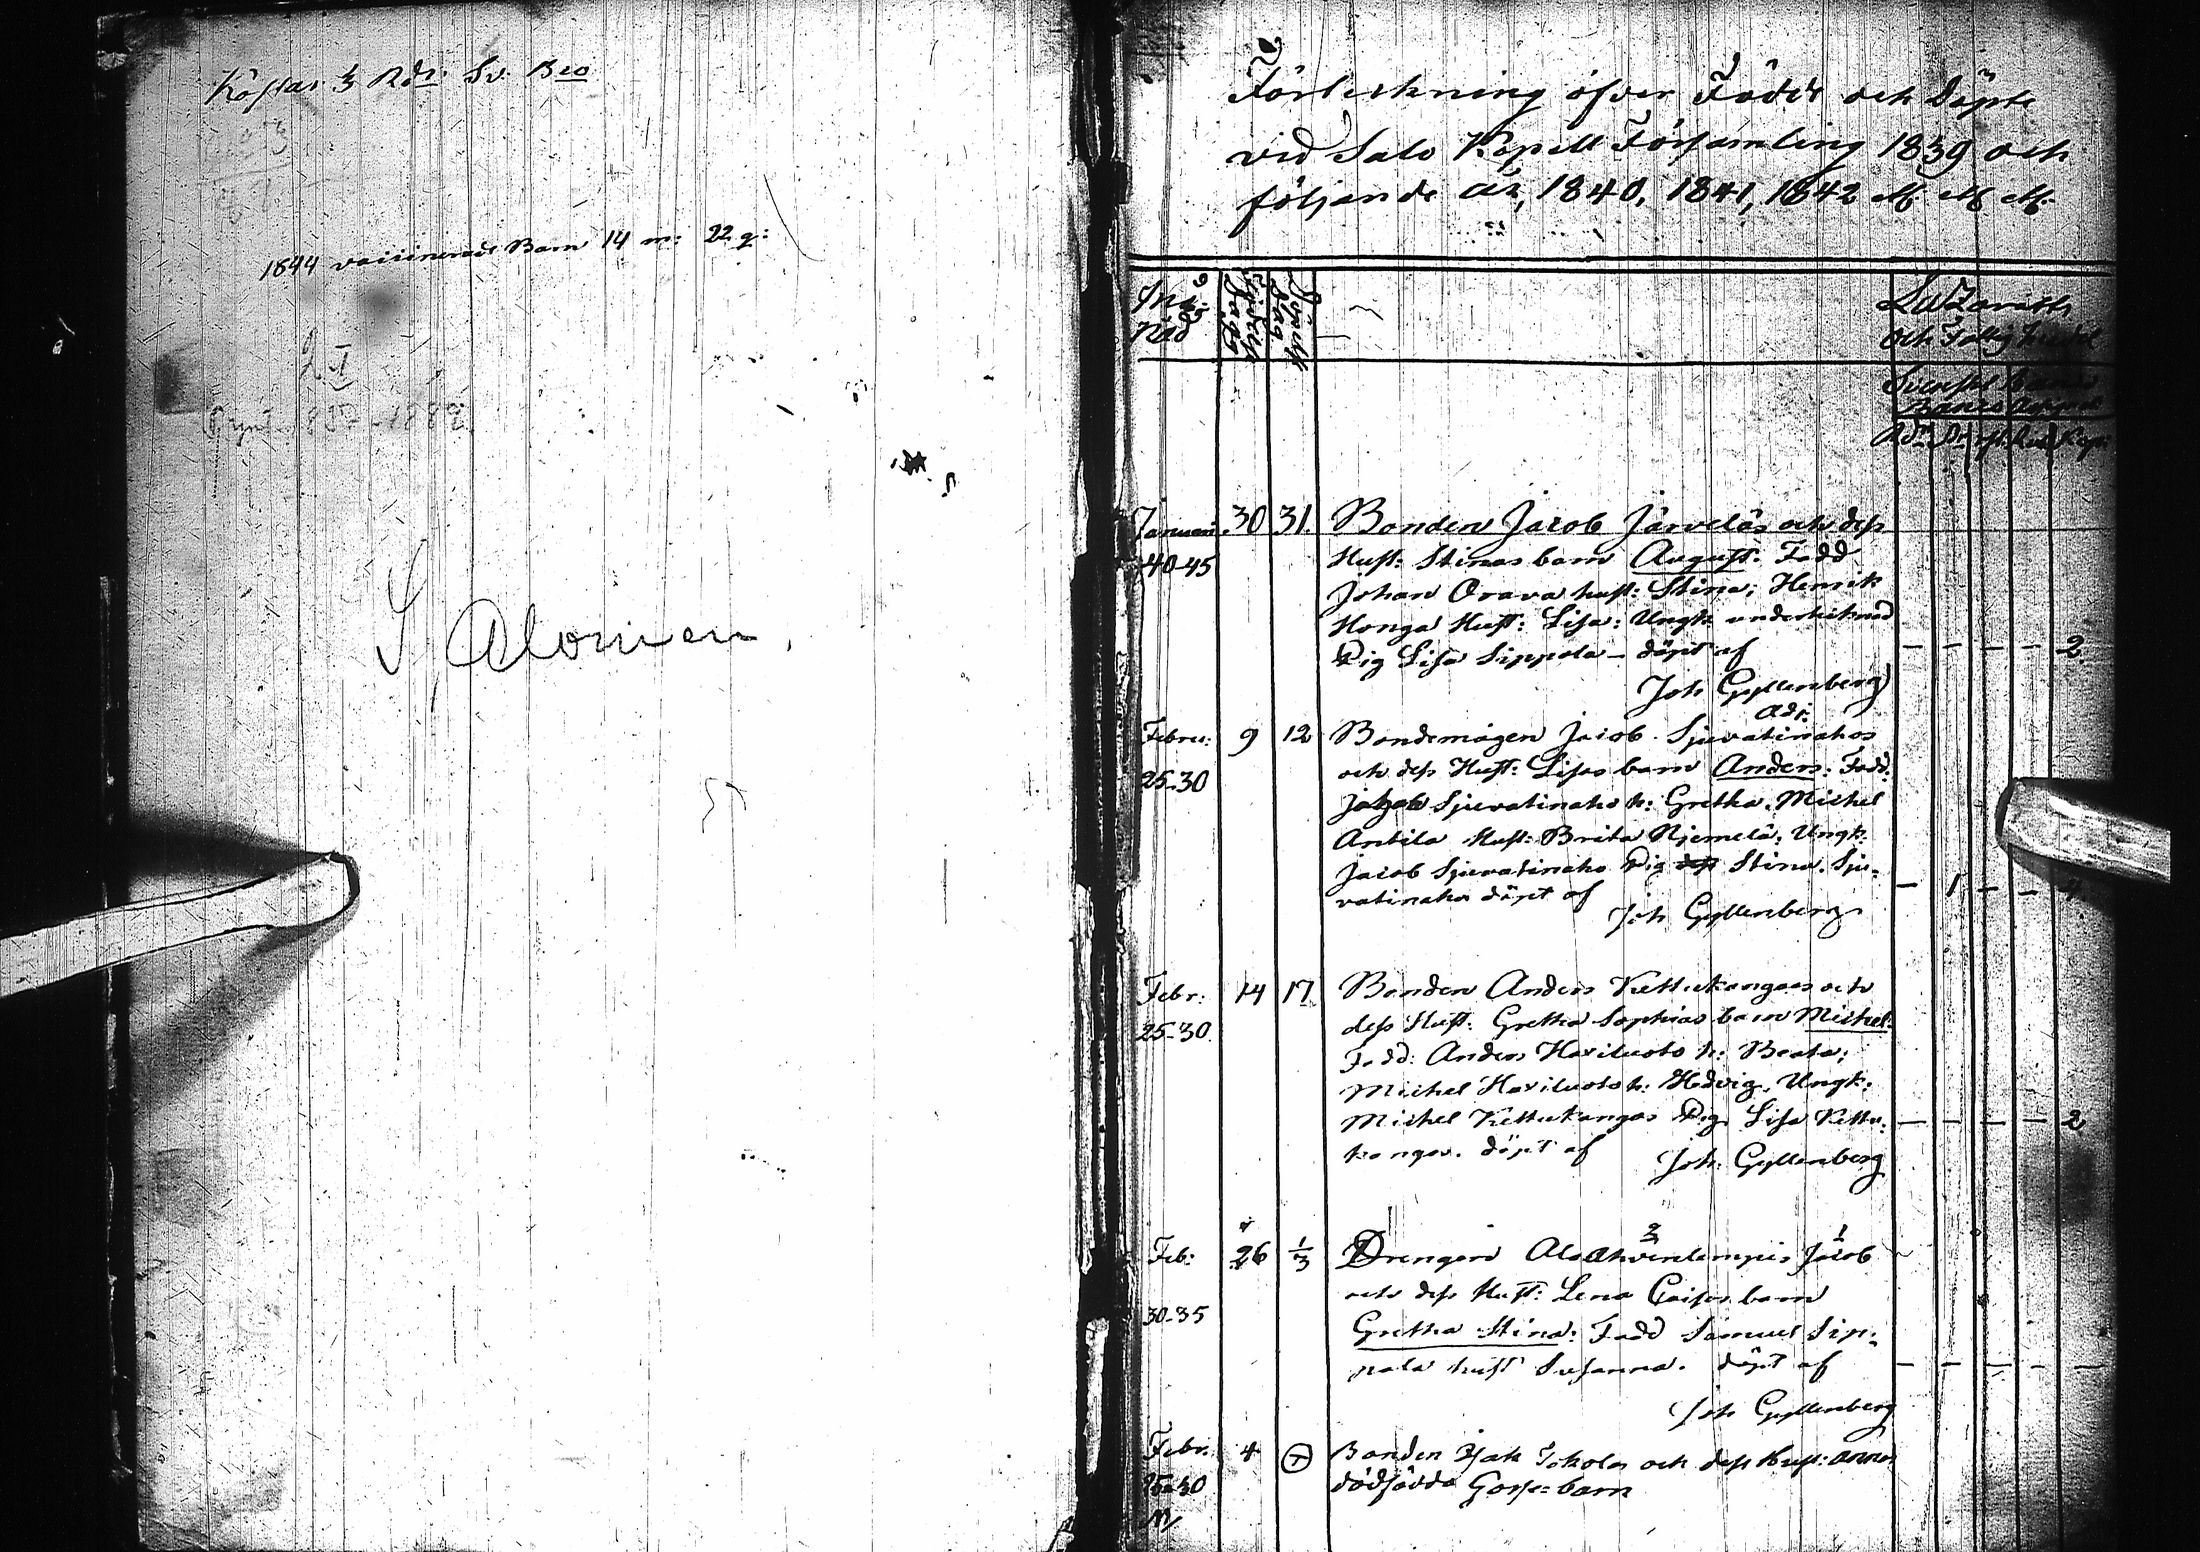 Kostar 3 Rdr. Sv. Bco
1844 vaccinerade Barn 14 m: 22 q:
Salonien
Förteckning öfver Födde och Döpte
vid Salo Kapell Församling 1839 och
följande år, 1840, 1841, 1842 &c &c &c.
Må-
nad
Födelse
Dag
Döpelse
Dag
Lazaretts
och Fattig
Januari 30 31. Bonden Jacob Järveläs och dess
40-45 Hust: Stinas barn August. Fadd
Johan Orava hust: Stina; Henrik
Honga Hust: Lisa: Ungk. undertecknad
Pig Lisa Sippola – döpt af — — — — 2.
Joh Gyllenberg
Adj:
Febru: 9 12 Bondemågen Jacob Sjuvatinahos
25-30 och dess Hust: Lisas barn Anders: Fadd.
Jacob Sjuvatinaho h: Gretha. Michel
Antila Hust: Brita Njemelä. Ungk.
Jacob Sjuvatinaho Pig Stina Sju-
vatinaho döpt af — 1 — —
Joh Gyllenberg
Febr: 14 17 Bonden Anders Kettukangas och
25-30. dess Hust: Gretha Sophias barn Michel:
Fadd: Anders Haviluoto h: Beata;
Michel Haviluoto h: Hedvig, Ungk.
Michel Kettukangas Pig Lisa Kettu- — — — — 2
kangas. döpt af Joh: Gyllenberg
Feb: 26 1/3 Drengen Jacob
30-35 och dess Hust: Lena Caisas barn
Gretha Stina: Fadd Samuel Sip-
pala hust Susanna. döpt af — — — — —
Joh Gyllenberg
Febr. 4 Bonden Isak Jokolas och dess Hust: Annas
25-30 dödfödda Gosse-barn